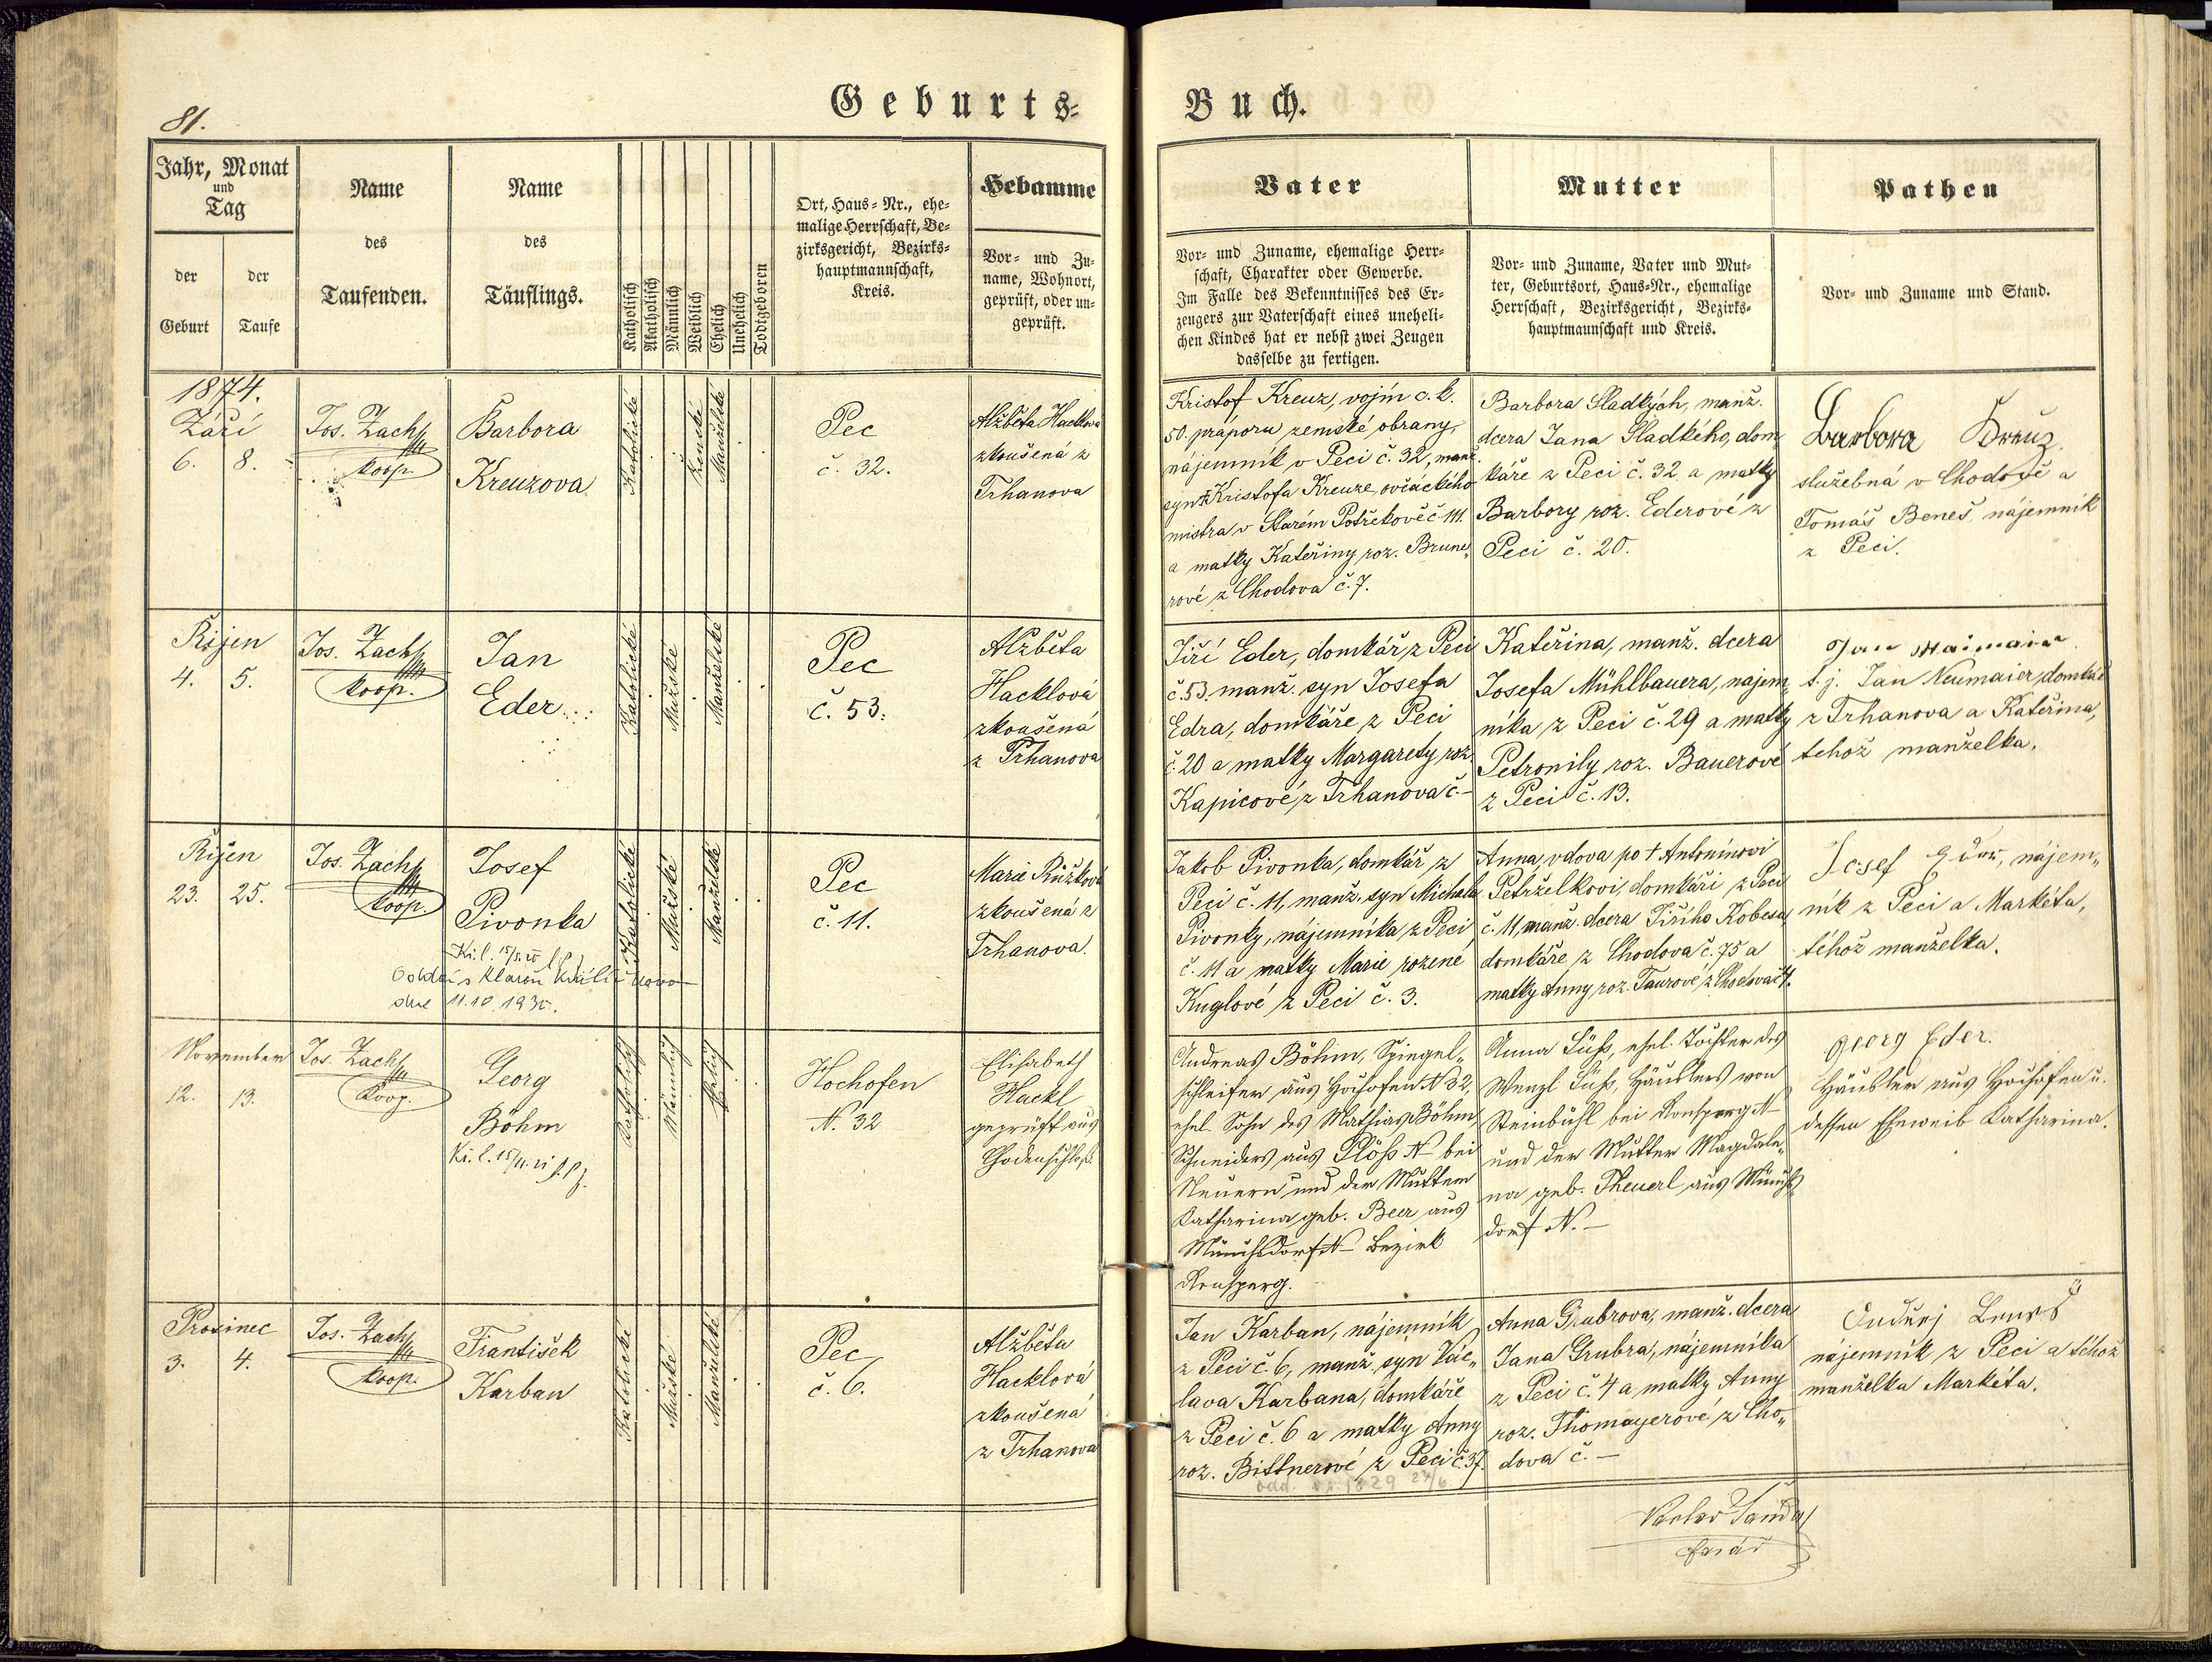 81.
Geburts-
Buch.
Jahr, Monat
und
Tag
der
Geburt
der
Taufe
Name
des
Taufenden.
Name
des
Täuflings.
Katholisch
Akatholisch
Männlich
Weiblich
Ehelich
Unehelich
Todtgeboren
Ort, Haus-Nr., ehe-
malige Herrschaft, Be-
zirksgericht, Bezirks-
hauptmannschaft,
Kreis.
Hebamme
Vor- und Zu-
name, Wohnort,
geprüft, oder un-
geprüft.
Vater
Vor- und Zuname, ehemalige Herr-
schaft, Charakter oder Gewerbe.
Im Falle des Bekenntnisses des Er-
zeugers zur Vaterschaft eines uneheli-
chen Kindes hat er nebst zwei Zeugen
dasselbe zu fertigen.
Mutter
Vor- und Zuname, Vater und Mut-
ter, Geburtsort, Haus-Nr., ehemalige
Herrschaft, Bezirksgericht, Bezirks-
hauptmannschaft und Kreis.
Pathen
Vor- und Zuname und Stand.
1874.
Září
6. 8.
Jos. Zach
koop.
Barbora
Kreuzova
Katolické
Ženské
Manželské
Pec
č. 32.
Alžběta Hacklova
zkoušená z
Trhanova
Kristof Kreuz, vojín c. k.
50. praporu zemské obrany,
nájemník v Peci č. 32, manž.
syn Kristofa Kreuze, ovčáckého
mistra v Starém Potřekově č 111.
a matky Kateřiny roz. Brune„
rové z Chodova č. 7.
Barbora Sladkých, manž.
dcera Jana Sladkého, dom
káře z Peci č. 32 a matky
Barbory roz. Ederové z
Peci č. 20.
Barbora Kreuz,
služebná v Chodově a
Tomáš Beneš, nájemník
z Peci.
Říjen
4. 5.
Jos. Zach
koop.
Jan
Eder
Katolické
Mužské
Manželské
Pec
č. 53.
Alžběta
Hacklová
zkoušená
z Trhanova
Jiří Eder, domkář z Peci
č. 53. manž. syn Josefa
Edra, domkáře z Peci
č. 20 a matky Margarety roz.
Kapicové z Trhanova č. –
Kateřina, manž. dcera
Josefa Mühlbauera, nájem„
níka z Peci č. 29 a matky
Petronily roz. Bauerové
z Peci č. 13.
Jan Maimair
t. j. Jan Neumaier, domkář
z Trhanova a Kateřina,
tehož manželka.
Říjen
23. 25.
Jos. Zach
koop.
Josef
Pivonka
dne 11.10.1930.
Katolické
Mužské
Manželské
Pec
č. 11.
Marie Růžková
zkoušená z
Trhanova.
Jakob Pivonka, domkář z
Peci č. 11, manž. syn Michala
Pivonky, nájemníka z Peci
č. 11 a matky Marie rozené
Kuglové z Peci č. 3.
Anna, vdova po † Antonínovi
Petrželkovi, domkáři z Peci
č. 11, manž. dcera Jiřího Kobesa,
domkáře z Chodova č. 75 a
matky Anny roz. Taurové z Chodova č 4.
Josef Eder, nájem„
ník z Peci a Markéta,
téhož manželka.
November
12. 13.
Jos. Zach
Koop.
Georg
Böhm
Katholisch
Männlich
Ehelich
Hochofen
N. 32
Elisabeth
Hackl
geprüft aus
Chodenschloß.
Andreas Böhm, Spiegel„
schleifer aus Hochofen N 32,
ehel. Sohn des Mathias Böhm,
Schneiders aus Plöss N – bei
Neuern und der Mutter
Katharina geb. Beer aus
Münchsdorf N – Bezirk
Ronsperg.
Anna Süß, ehel. Tochter des
Wenzl Süß, Häuslers von
Steinbühl bei Ronsperg N –
und der Mutter Magdale„
na geb. Theuerl aus Münchs„
dorf N. –
Georg Eder.
Häusler aus Hochofen u.
dessen Eheweib Katharina.
Prosinec
3. 4.
Jos. Zach
koop.
František
Karban
Katolické
Mužské
Manželské
Pec
č. 6.
Alžběta
Hacklová
zkoušená
z Trhanova
Jan Karban, nájemník
z Peci č. 6, manž. syn Vác„
lava Karbana, domkáře
z Peci č. 6 a matky Anny
roz. Bittnerové z Peci č. 37.
Anna Grubrova, manž. dcera
Jana Grubra, nájemníka
z Peci č. 4 a matky Anny
roz. Thomayerové z Cho„
dova č. –
Ondřej
nájemník z Peci a téhož
manželka Markéta.
farář